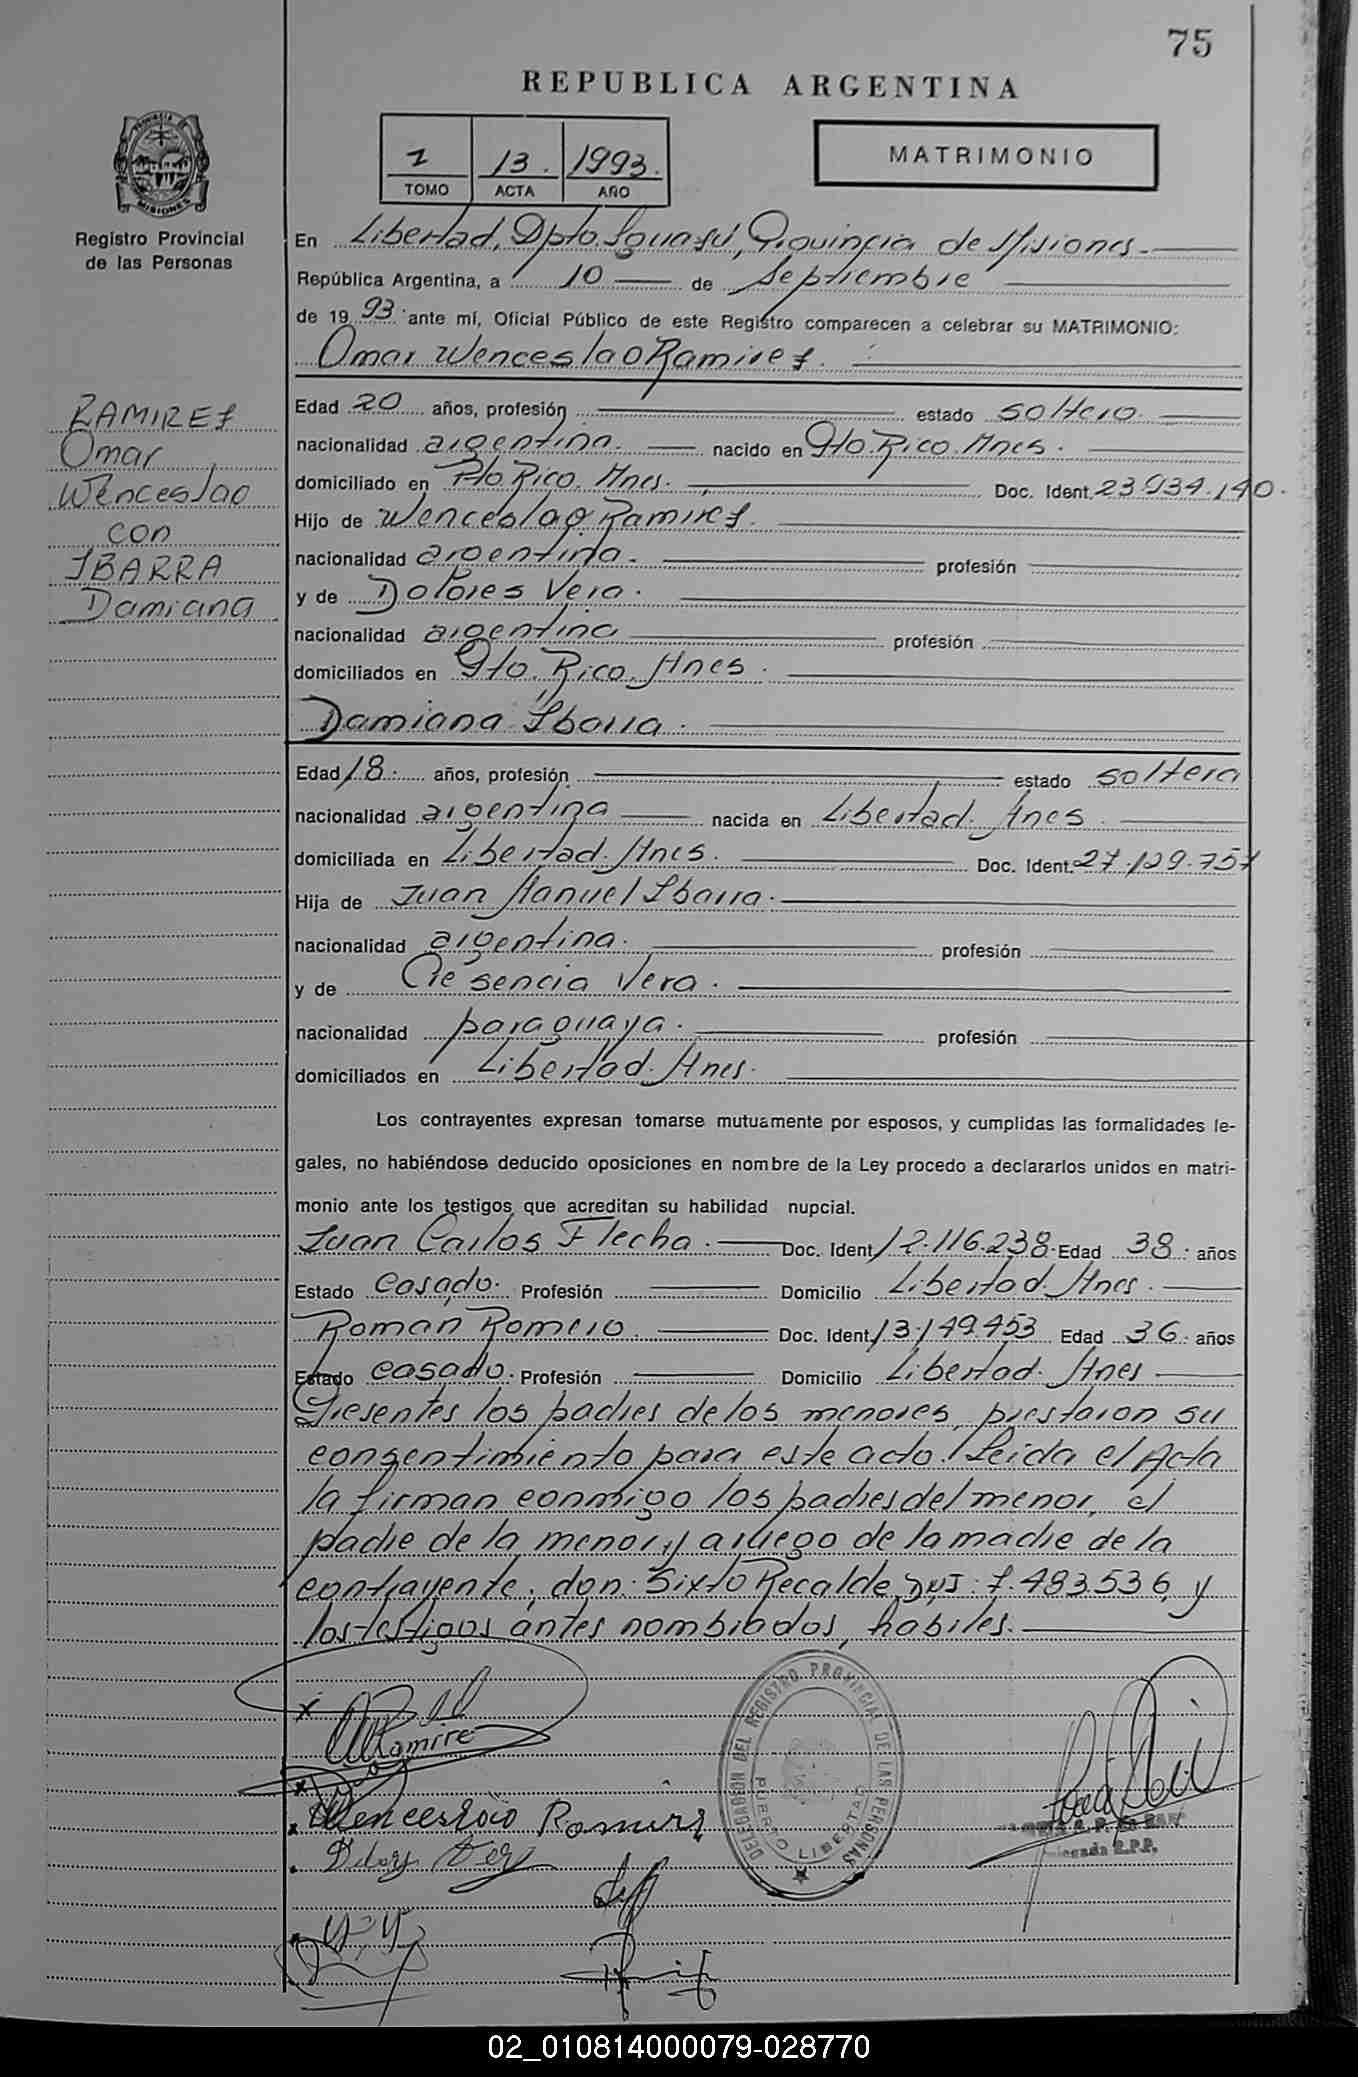 75
REPUBLICA ARGENTINA
2 13. 1993.
TOMO ACTA AÑO
MATRIMONIO
PROVINCIA DE
MISIONES
Registro Provincial
de las Personas
En Libertad, Dpto. Iguasú, Provincia de Misiones.
República Argentina, a 10 de Septiembre
de 19 93 ante mí, Oficial Público de este Registro comparecen a celebrar su MATRIMONIO:
Omar Wenceslao Ramirez.
RAMIREZ
Omar
Wenceslao
con
IBARRA
Damiana
Edad 20 años, profesión estado soltero.
nacionalidad argentina. nacido en Pto. Rico. Mnes.
domiciliado en Pto Rico. Mnes. Doc. Ident. 23.934.140.
Hijo de Wenceslao Ramirez.
nacionalidad argentina. profesión
y de Dolores Vera.
nacionalidad argentina profesión
domiciliados en Pto. Rico. Mnes.
Damiana Ibarra.
Edad 18. años, profesión estado soltera
nacionalidad argentina nacida en Libertad. Mnes.
domiciliada en Libertad. Mnes. Doc. Ident. 27.129.757
Hija de Juan Manuel Ibarra.
nacionalidad argentina. profesión
y de Cresencia Vera.
nacionalidad paraguaya. profesión
domiciliados en Libertad. Mnes.
Los contrayentes expresan tomarse mutuamente por esposos, y cumplidas las formalidades le-
gales, no habiéndose deducido oposiciones en nombre de la Ley procedo a declararlos unidos en matri-
monio ante los testigos que acreditan su habilidad nupcial.
Juan Carlos Flecha. Doc. Ident. 12.116.238. Edad 38. años
Estado casado. Profesión Domicilio Libertad. Mnes.
Roman Romero. Doc. Ident. 13.149.453 Edad 36. años
Estado casado. Profesión Domicilio Libertad. Mnes
Presentes los padres de los menores, prestaron su
consentimiento para este acto. Leida el Acta
la firman conmigo los padres del menor, el
padre de la menor, y a ruego de la madre de la
contrayente, don: Sixto Recalde, DNI: 7.483.536, y
los testigos antes nombrados, habiles.
Ramire
Wenceslao Ramirez
DELEGACION DEL REGISTRO PROVINCIAL DE LAS PERSONAS
PUERTO LIBERTAD
R.P.P.
02_010814000079-028770